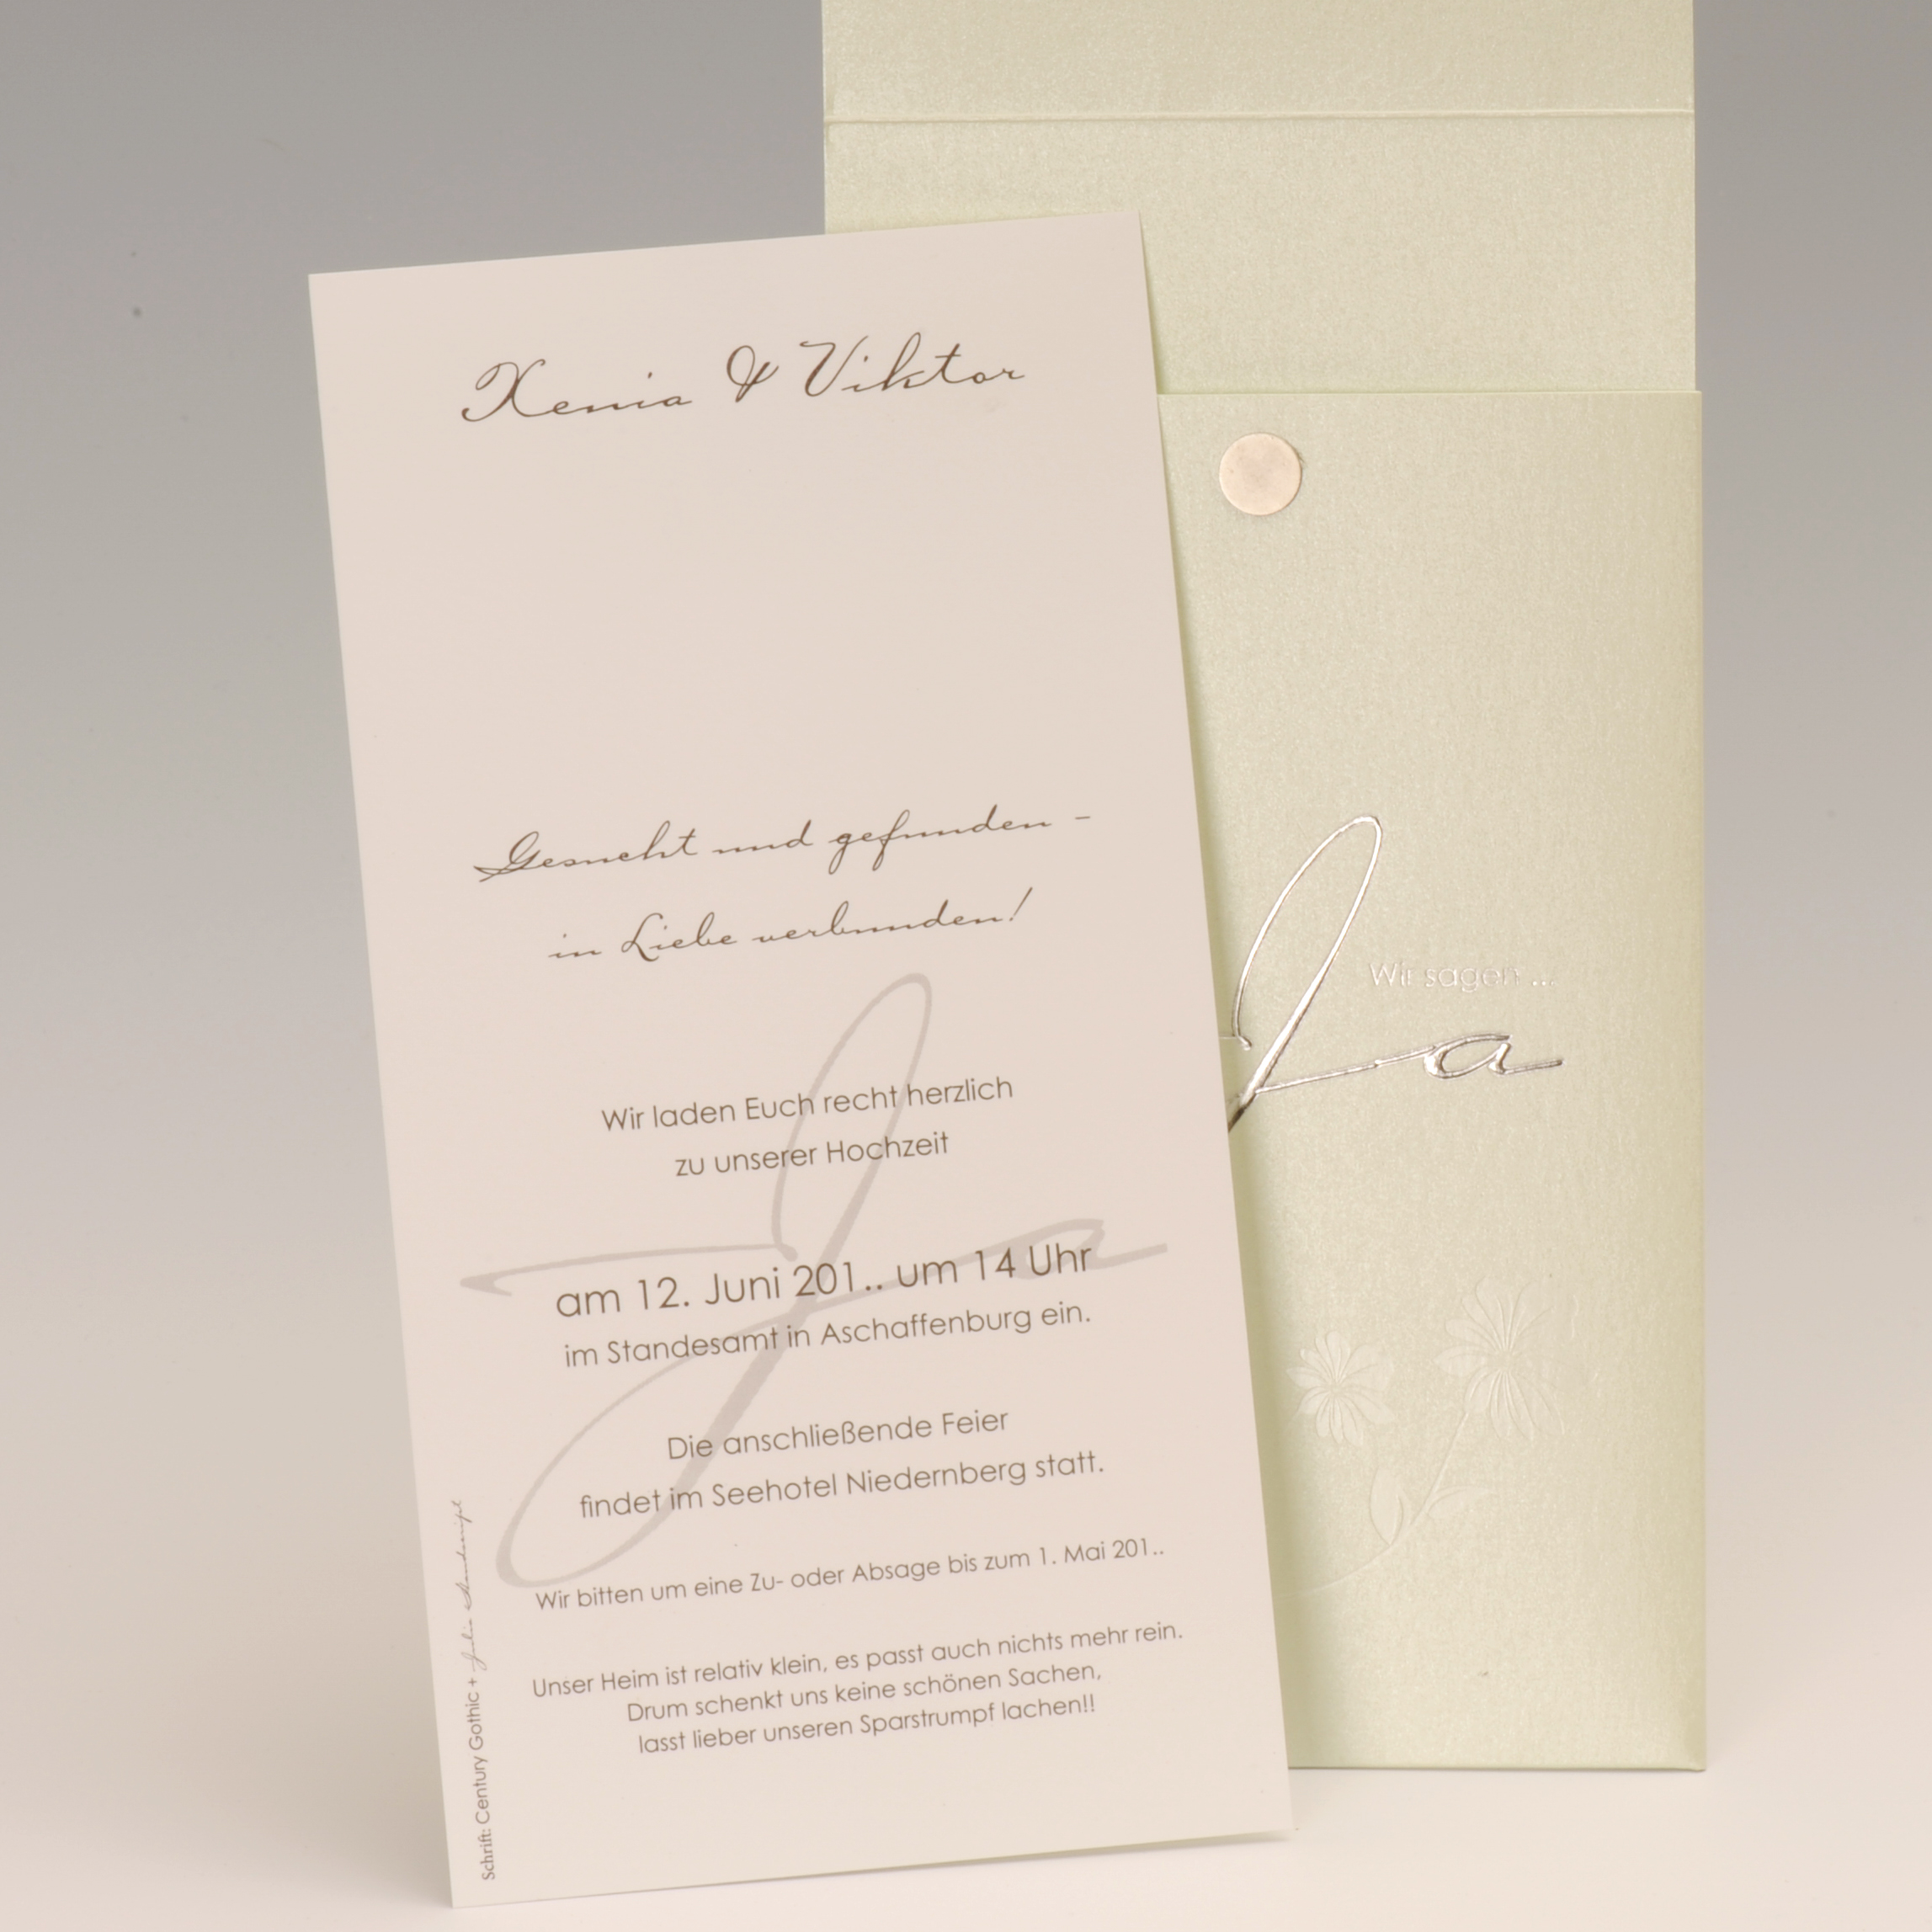 Xenia & Viktor
Gesucht und gefunden -
in Liebe verbunden!
Wir laden Euch recht herzlich
zu unserer Hochzeit
am 12. Juni 201.. um 14 Uhr
im Standesamt in Aschaffenburg ein.
Die anschließende Feier
findet im Seehotel Niedernberg statt.
Wir bitten um eine Zu- oder Absage bis zum 1. Mai 201..
Unser Heim ist relativ klein, es passt auch nichts mehr rein.
Drum schenkt uns keine schönen Sachen,
lasst lieber unseren Sparstrumpf lachen!!
Ja
Schrift: Century Gothic + Julia Handscript
Wir sagen ...
Ja